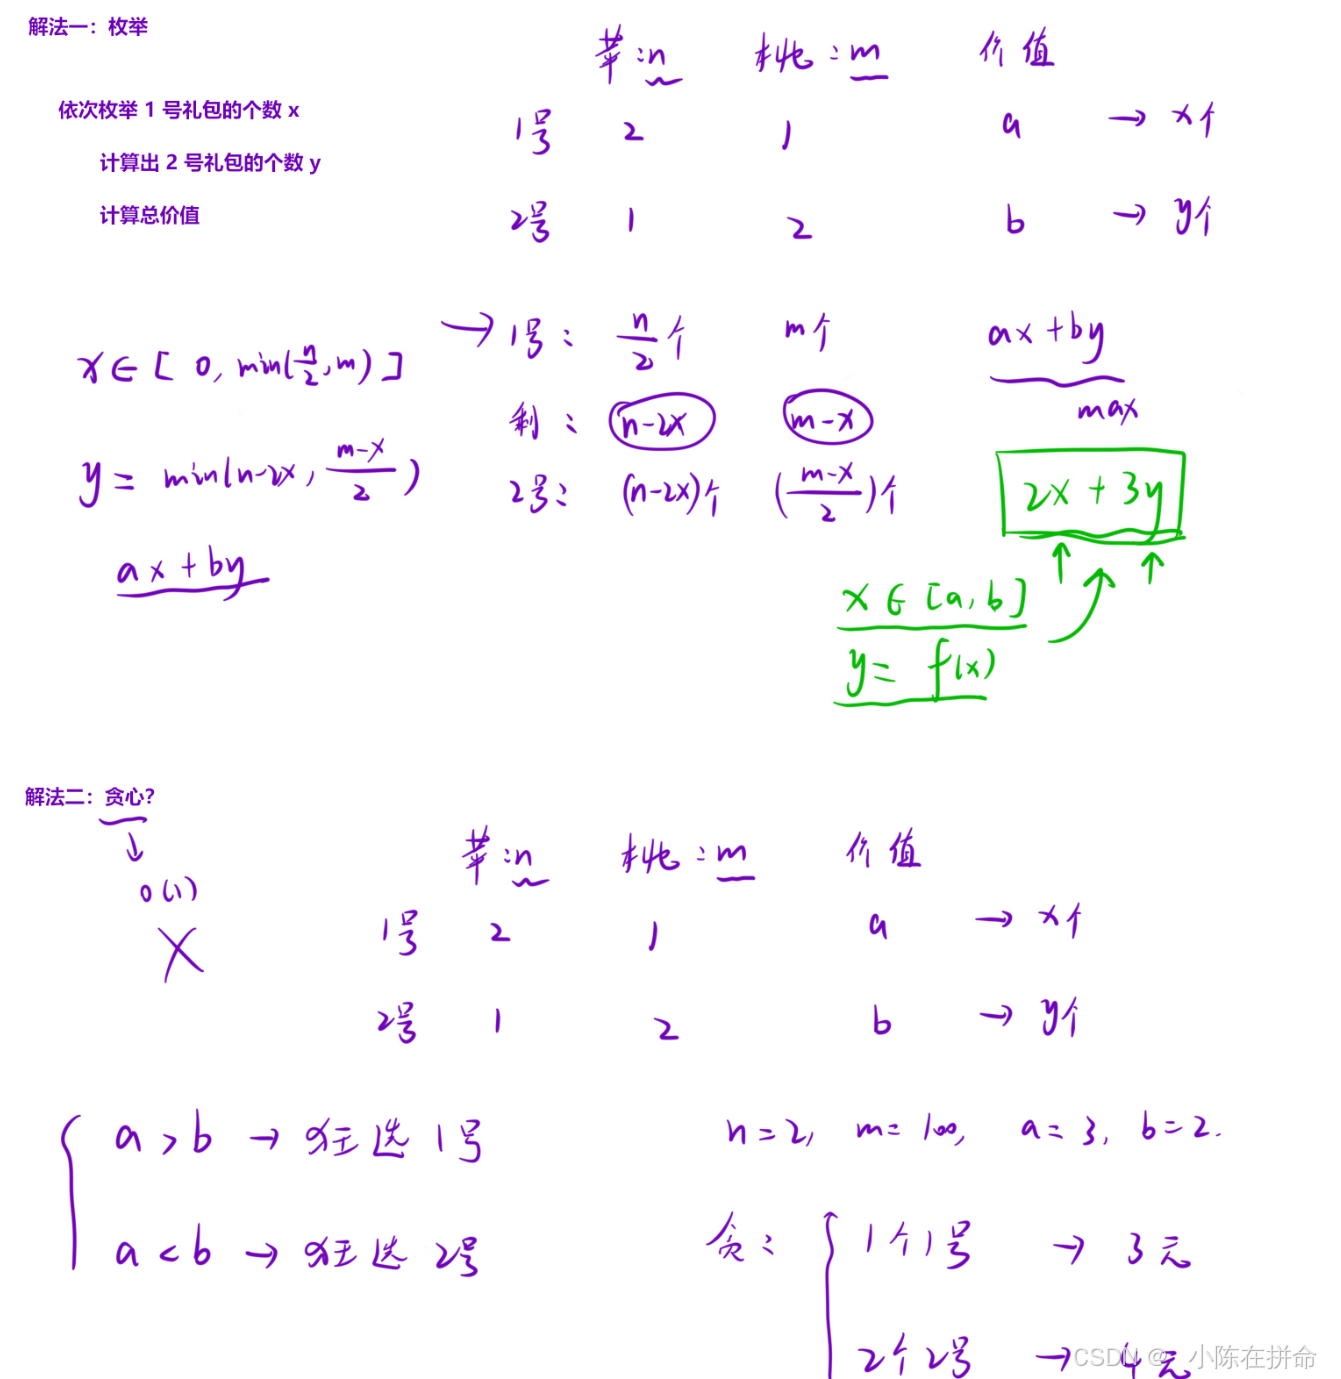 解法一：枚举
苹：n 桃：m 价值
依次枚举 1 号礼包的个数 x
1号 2 1 a → x个
计算出 2 号礼包的个数 y
计算总价值
2号 1 2 b → y个
→ 1号： n/2 个 m个 ax+by
max
x∈[0, min(n/2, m)]
剩： n-2x m-x
y = min(n-2x, (m-x)/2)
2号： (n-2x)个 ((m-x)/2)个
2x + 3y
ax+by
x∈[a,b]
y = f(x)
解法二：贪心？
↓
O(1)
X
苹：n 桃：m 价值
1号 2 1 a → x个
2号 1 2 b → y个
a > b → 狂选 1号
a < b → 狂选 2号
n=2, m=100, a=3, b=2.
贪： 1个1号 → 3元
2个2号 → 4元
CSDN @、小陈在拼命